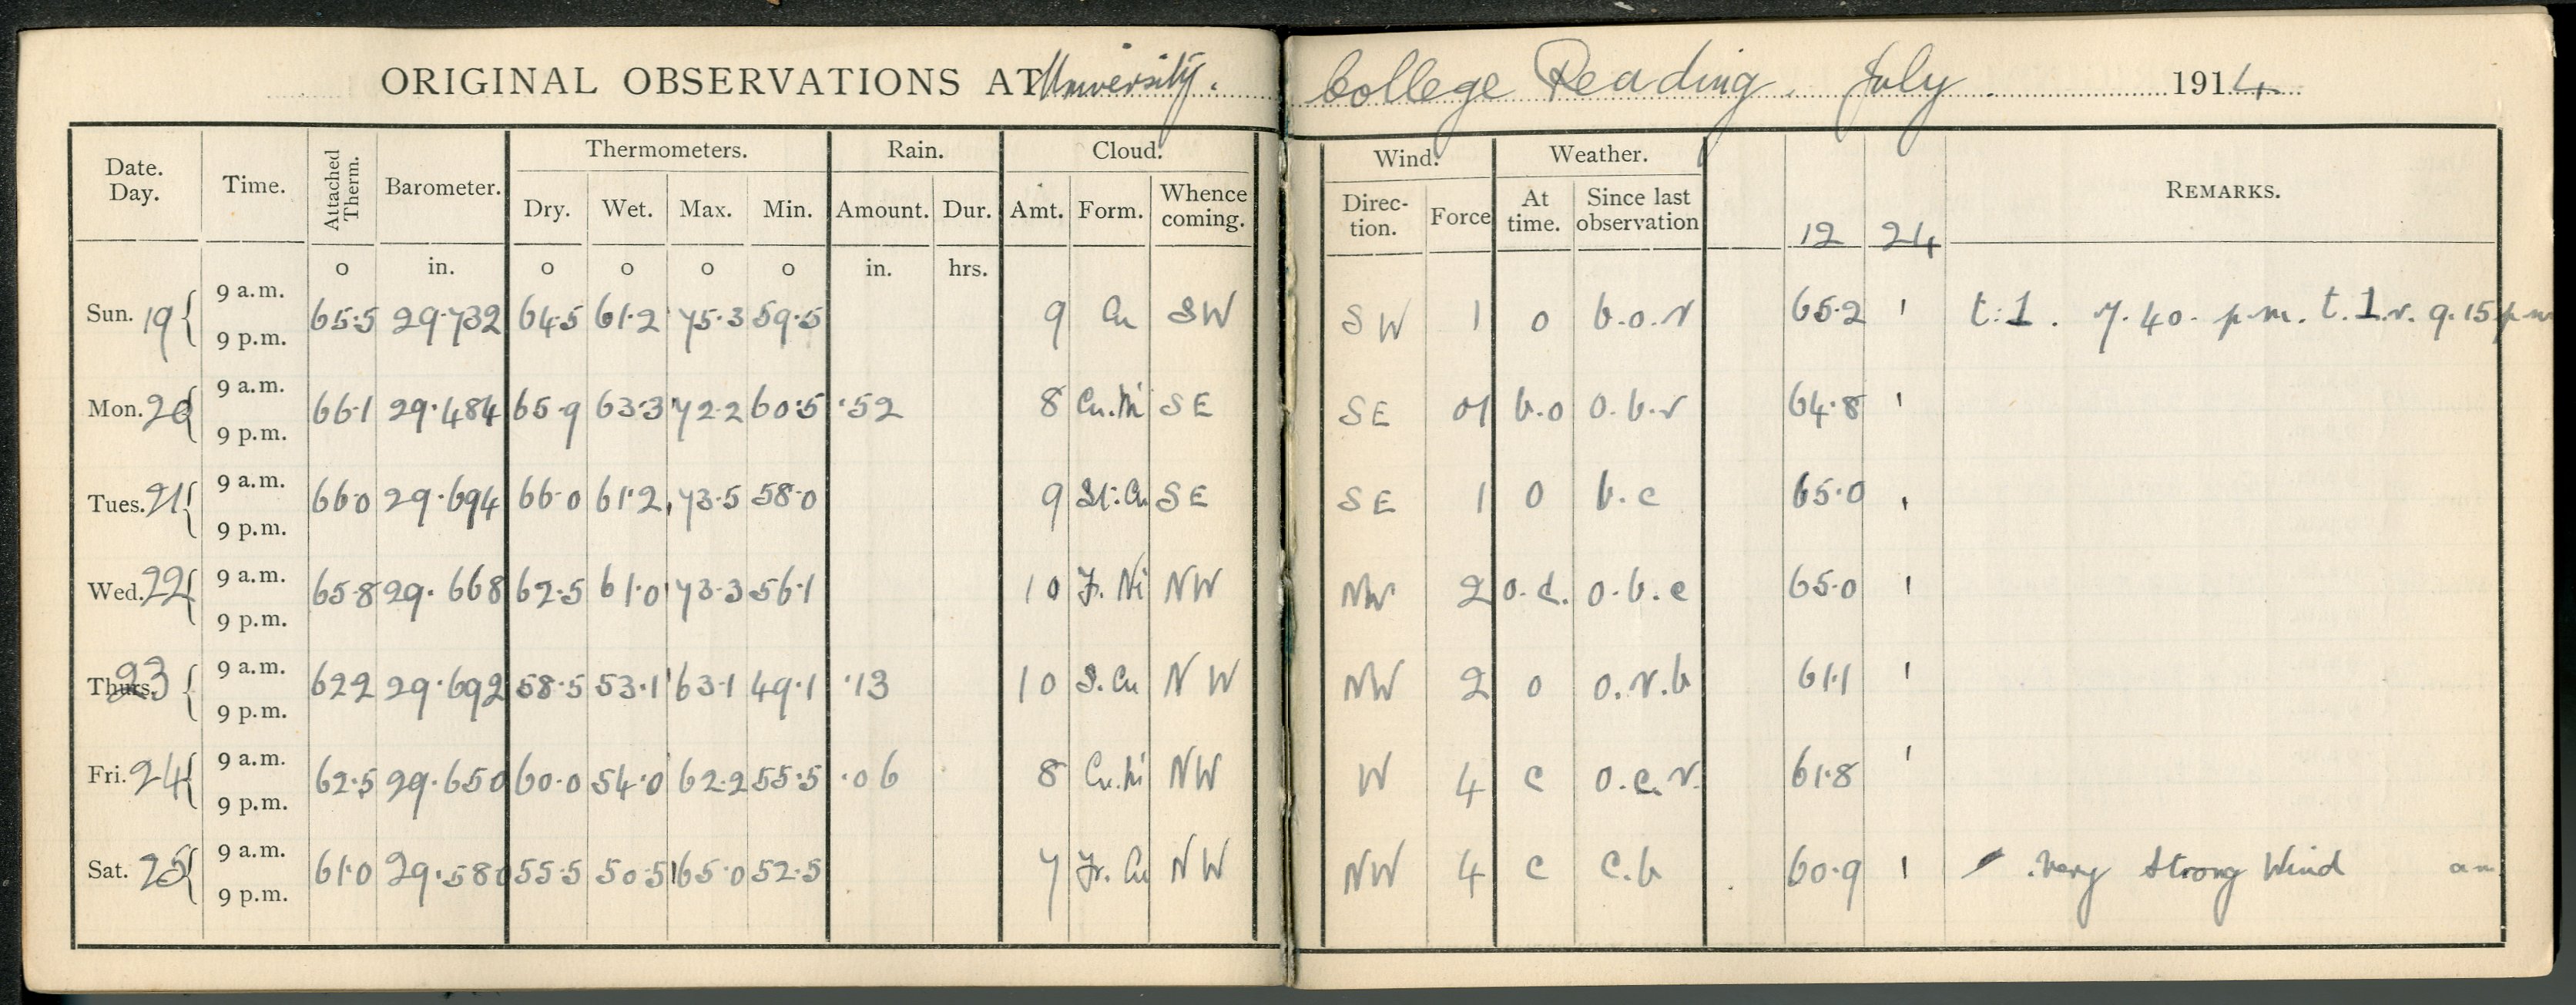 ORIGINAL OBSERVATIONS AT University. College Reading. July. 1914.
Date. Day. Time. Attached Therm. Barometer. Thermometers. Rain. Cloud. Wind. Weather. REMARKS.
Dry. Wet. Max. Min. Amount. Dur. Amt. Form. Whence coming. Direc- tion. Force At time. Since last observation 12 24
o in. o o o o in. hrs.
Sun. 19 9 a.m. 9 p.m. 65.5 29.732 64.5 61.2 75.3 59.5 9 Cu SW SW 1 o b.o.r 65.2 ' t.l. 7.40. p.m. t.l.r. 9.15 p.m
Mon. 20 9 a.m. 9 p.m. 66.1 29.484 65.9 63.3 72.2 60.5 .52 8 Cu.Ni SE SE 01 b.o o.b.r 64.8 '
Tues. 21 9 a.m. 9 p.m. 66.0 29.694 66.0 61.2 73.5 58.0 9 St.Cu SE SE 1 o b.c 65.0 '
Wed. 22 9 a.m. 9 p.m. 65.8 29.668 62.5 61.0 73.3 56.1 10 Fr.Ni NW NW 2 o.d. o.b.c 65.0 '
Thurs. 23 9 a.m. 9 p.m. 62.2 29.692 58.5 53.1 63.1 49.1 .13 10 S.Cu NW NW 2 o o.r.b 61.1 '
Fri. 24 9 a.m. 9 p.m. 62.5 29.650 60.0 54.0 62.2 55.5 .06 8 Cu.Ni NW W 4 c o.c.r. 61.8 '
Sat. 25 9 a.m. 9 p.m. 61.0 29.580 55.5 50.5 65.0 52.5 7 Fr.Cu NW NW 4 c c.b 60.9 ' Very Strong Wind am